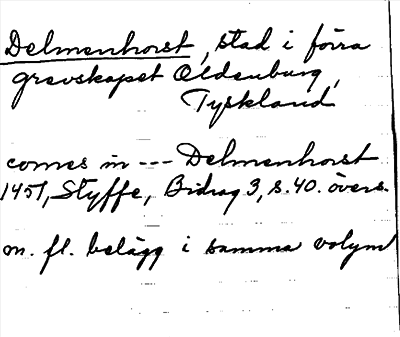 Delmenhorst, stad i förra
grevskapet Oldenburg,
Tyskland
comes in --- Delmenhorst
1451, Styffe, Bidrag 3, s. 40. övers.
m. fl. belägg i samma volym